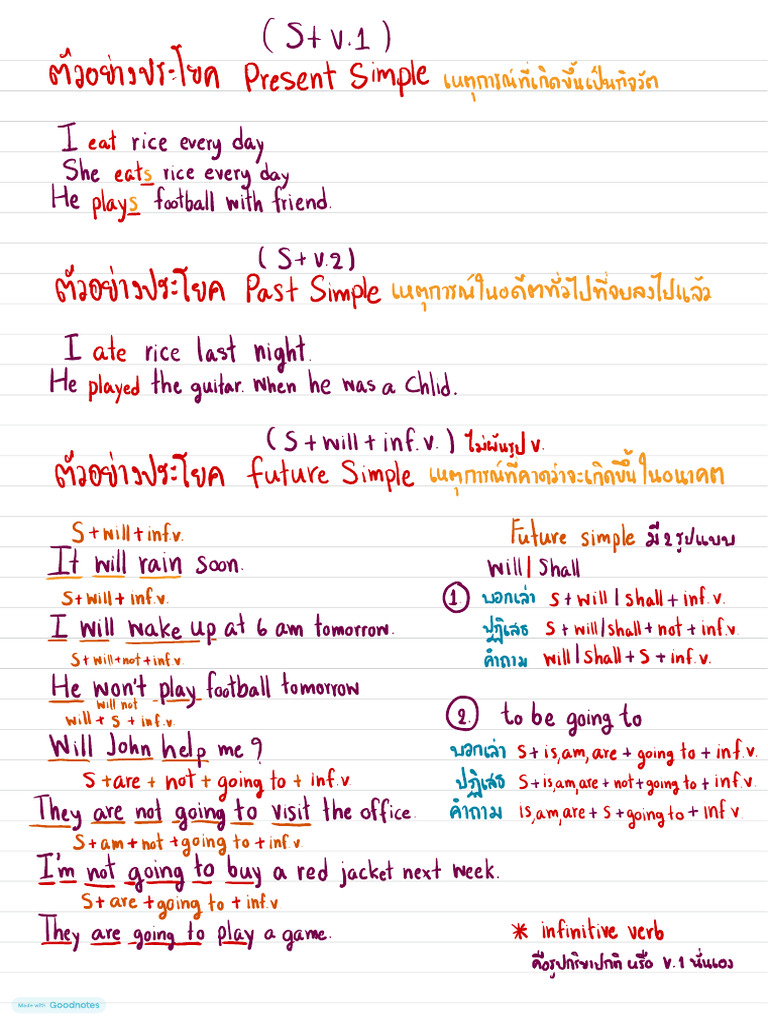 (S+v.1)
ตัวอย่างประโยค Present Simple เหตุการณ์ที่เกิดขึ้นเป็นกิจวัต
I eat rice every day
She eats rice every day
He plays football with friend.
(S+v.2)
ตัวอย่างประโยค Past Simple เหตุการณ์ในอดีตทั่วไปที่จบลงไปแล้ว
I ate rice last night.
He played the guitar. when he was a Chlid.
(S+will+inf.v.) ไม่ผันรูป v.
ตัวอย่างประโยค future Simple เหตุการณ์ที่คาดว่าจะเกิดขึ้นในอนาคต
S+will+inf.v.
It will rain soon.
S+will+inf.v.
I will wake up at 6 am tomorrow.
S+will+not+inf.v.
He won't play football tomorrow
will not
will+S+inf.v.
Will John help me?
S+are+not+going to+inf.v
They are not going to visit the office.
S+am+not+going to+inf.v
I'm not going to buy a red jacket next week.
S+are+going to+inf.v
They are going to play a game.
Future simple มี 2 รูปแบบ
will|Shall
1. บอกเล่า S+will|shall+inf.v.
ปฏิเสธ S+will/shall+not+inf.v.
คำถาม will|Shall+S+inf.v.
2. to be going to
บอกเล่า S+is,am,are+going to+inf.v.
ปฏิเสธ S+is,am,are+not+going to+inf.v.
คำถาม is,am,are+S+going to+inf v.
* infinitive verb
คือรูปกริยาปกติ หรือ v.1 นั่นเอง
Made with Goodnotes